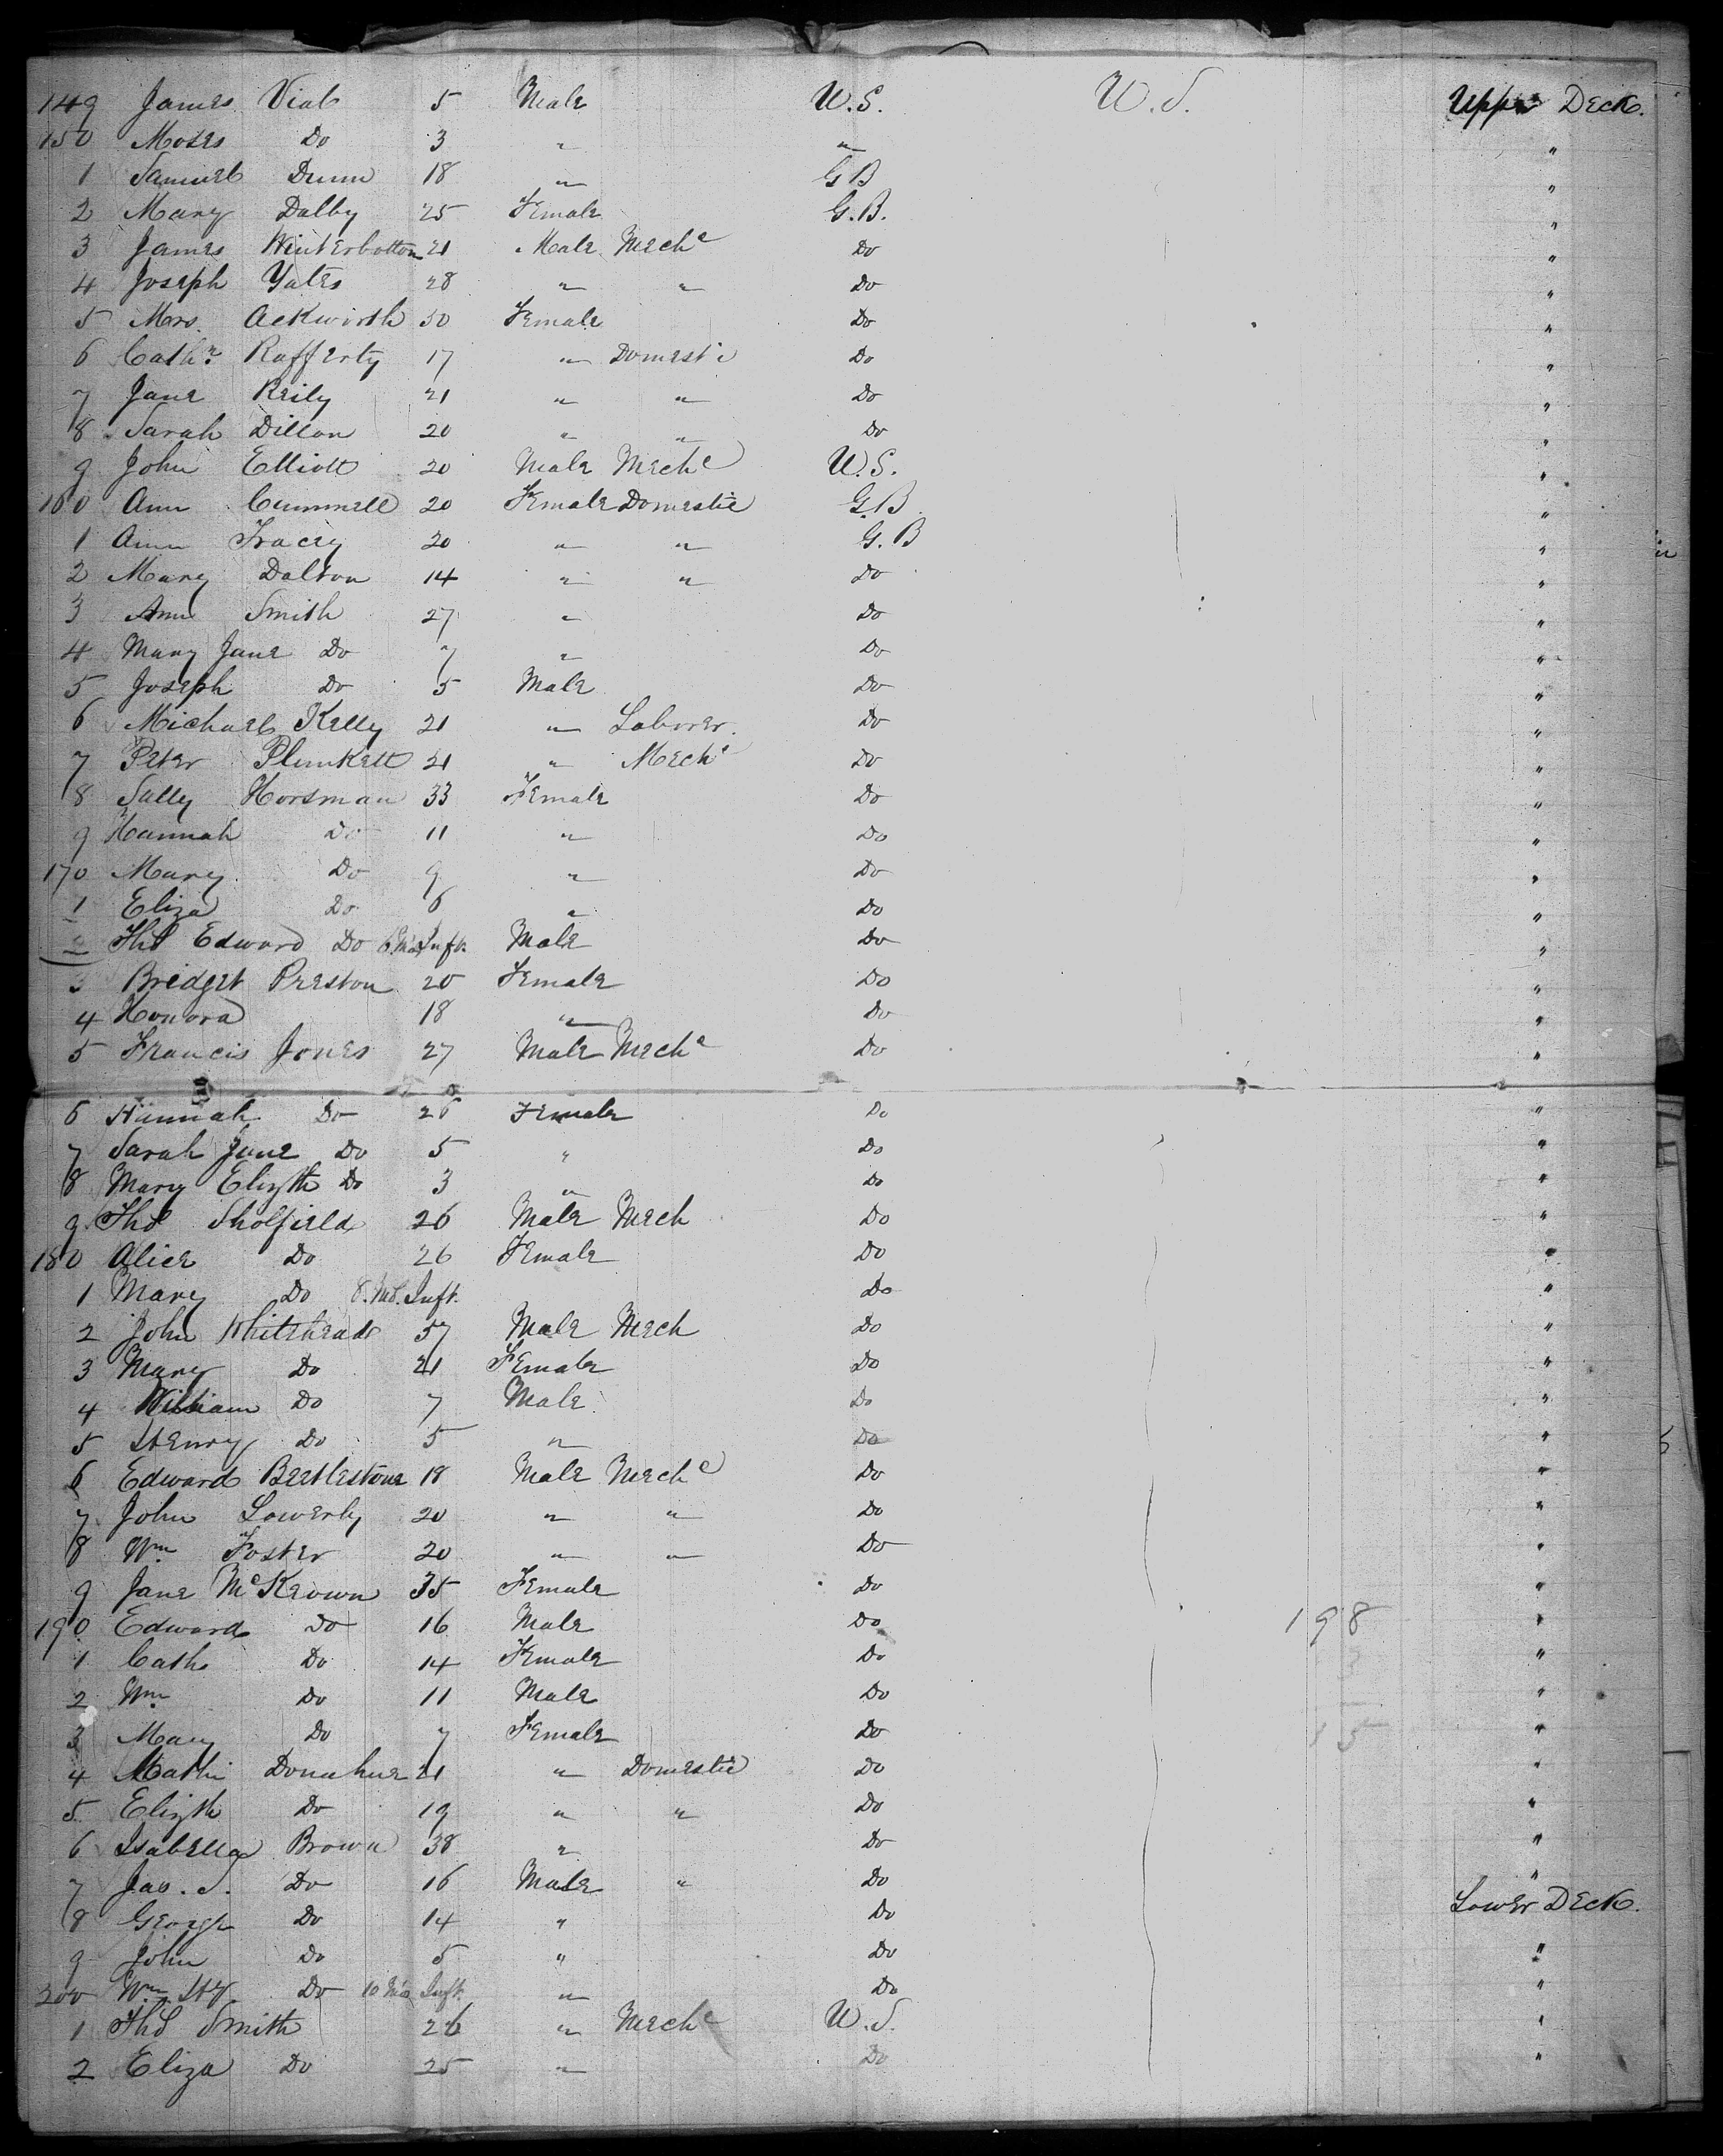 149 James Vial 5 Male U.S. U.S. Upper Deck.
150 Moses Do 3 " " "
1 Samuel Dunn 18 " GB "
2 Mary Dalby 25 Female G.B. "
3 James Winterbottom 21 Male Mechc Do "
4 Joseph Yates 28 " " Do "
5 Mrs. Ackworth 50 Female Do "
6 Cathn. Rafferty 17 " Domestic Do "
7 Jane Reily 21 " " Do "
8 Sarah Dillon 20 " " Do "
9 John Elliott 20 Male Mechc U.S. "
160 Ann Cummell 20 Female Domestic G.B. "
1 Ann Tracey 20 " " G.B "
2 Mary Dalton 14 " " Do "
3 Ann Smith 27 " Do "
4 Mary Jane Do 7 " Do "
5 Joseph Do 5 Male Do "
6 Michael Kelly 21 " Laborer. Do "
7 Peter Plunkett 21 " Mechc Do "
8 Sally Horsman 33 Female Do "
9 Hannah Do 11 " Do "
170 Mary Do 9 " Do "
1 Eliza Do 6 " Do "
2 Thos Edward Do 6 Mos Inft. Male Do "
3 Bridget Preston 20 Female Do "
4 Honora 18 " Do "
5 Francis Jones 27 Male Mechc Do "
6 Hannah Do 26 Female Do "
7 Sarah Jane Do 5 " Do "
8 Mary Elizth Do 3 " Do "
9 Thos Sholfield 26 Male Mech Do "
180 Alice Do 26 Female Do "
1 Mary Do 8. Mos. Inft. Do "
2 John Whitehead 57 Male Mech Do "
3 Mary Do 21 Female Do "
4 William Do 7 Male Do "
5 Henry Do 5 " Do "
6 Edward Beetlestone 18 Male Mechc Do "
7 John Lowerby 20 " " Do "
8 Wm Foster 20 " " Do "
9 Jane McKeown 35 Female Do "
190 Edward Do 16 Male Do 198 "
1 Cath Do 14 Female Do 3 "
2 Wm Do 11 Male Do "
3 Mary Do 7 Female Do "
4 Donahue 21 " Domestic Do "
5 Elizth Do 19 " " Do "
6 Isabella Brown 38 " Do "
7 Jas. S. Do 16 Male " Do "
8 George Do 14 " Do Lower Deck.
9 John Do 5 " Do "
200 Wm Hy. Do 10 Mos Inft. " Do "
1 Thos Smith 26 " Mechc U.S. "
2 Eliza Do 25 " Do "